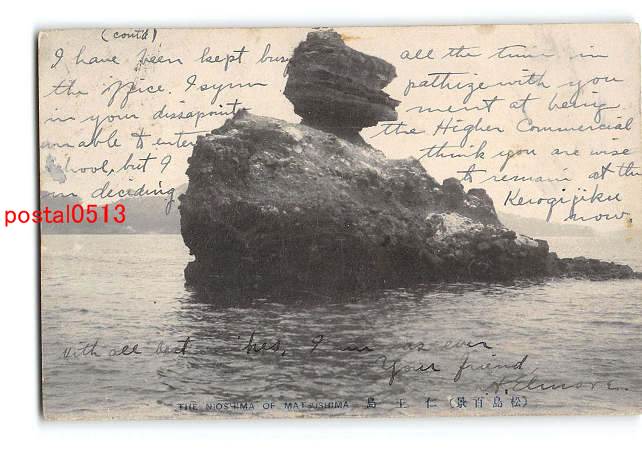 (contd)
I have been kept busy all the time in
the office. I sym pathize with you
in your dissapoint ment at being
unable to enter the Higher Commercial
school, but I think you are wise
in deciding to remain at the
Keiogijiku
now.
postal0513
With all best wishes, I am as ever
Your friend
THE NIOSHIMA OF MATSUSHIMA 島 王 仁 (景百島松)